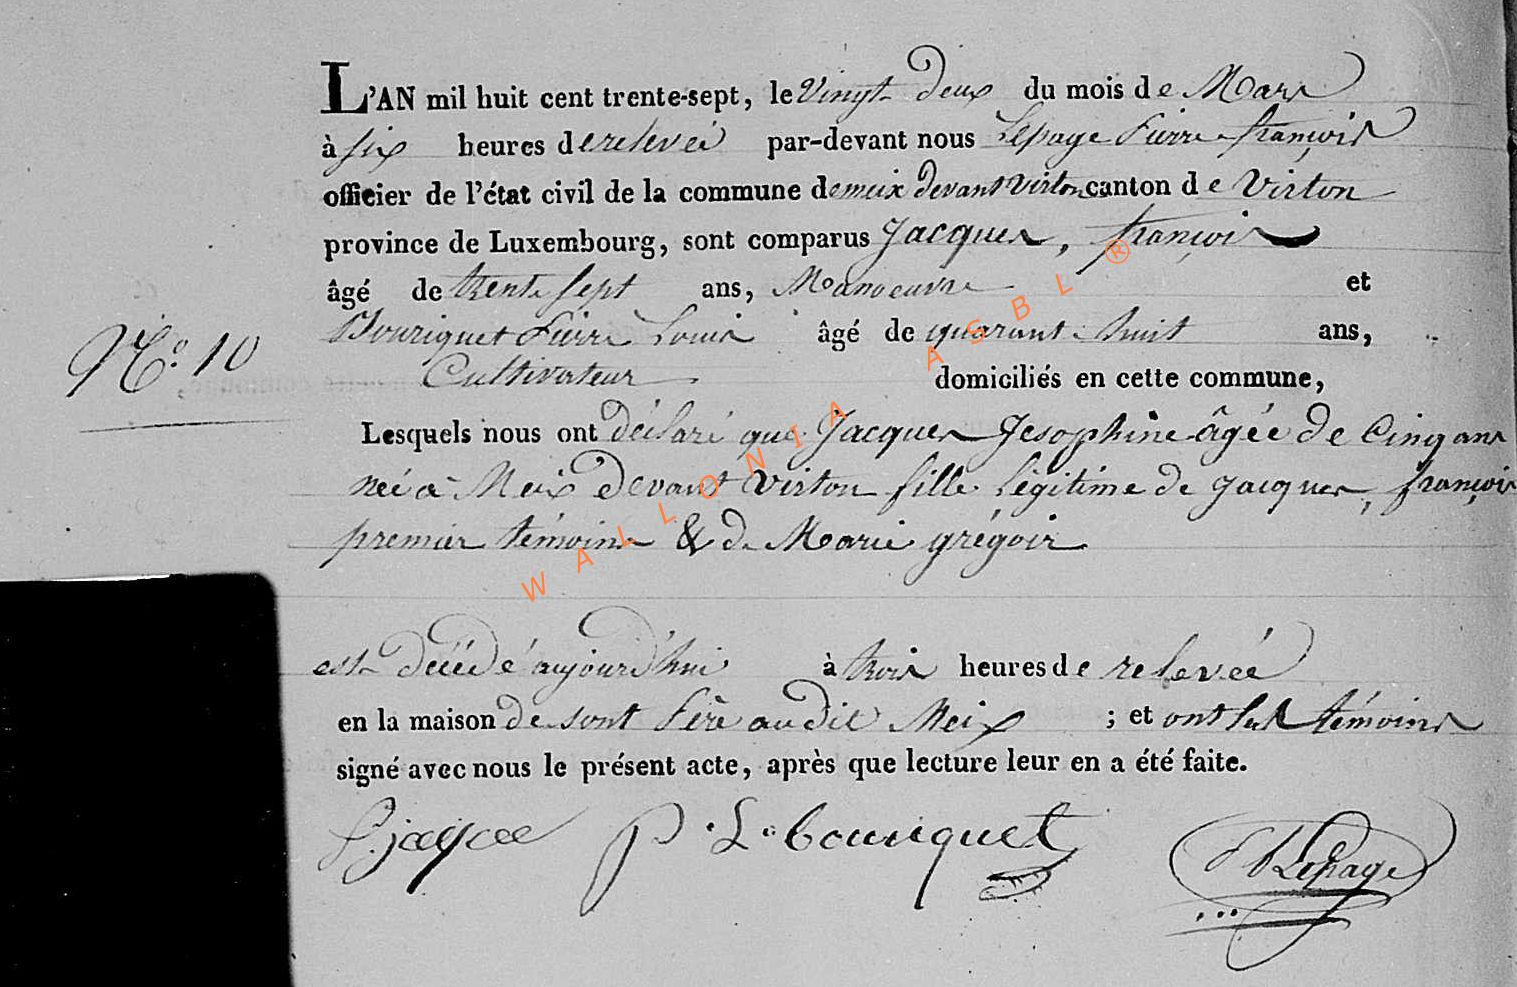 L'AN mil huit cent trente-sept, le Vingt deux du mois de Mars
à six heures de relevée par-devant nous Lepage Pierre françois
officier de l'état civil de la commune de meix devant virton canton de Virton
province de Luxembourg, sont comparus Jacques, françois
âgé de trente sept ans, Manoeuvre et
Bouriquet Pierre Louis âgé de quarante huit ans,
N.º 10
Cultivateur domiciliés en cette commune,
Lesquels nous ont déclaré que Jacques Jesophine âgée de Cinq ans
née à Meix Devant Virton fille légitime de Jacques, françois
premier témoins & de Marie grégoir
est décédé aujourd'hui à trois heures de relevée
en la maison de sont Père audit Meix ; et ont les témoins
signé avec nous le présent acte, après que lecture leur en a été faite.
P. L. bouriquet
Lepage
WALLONIA ASBL ®